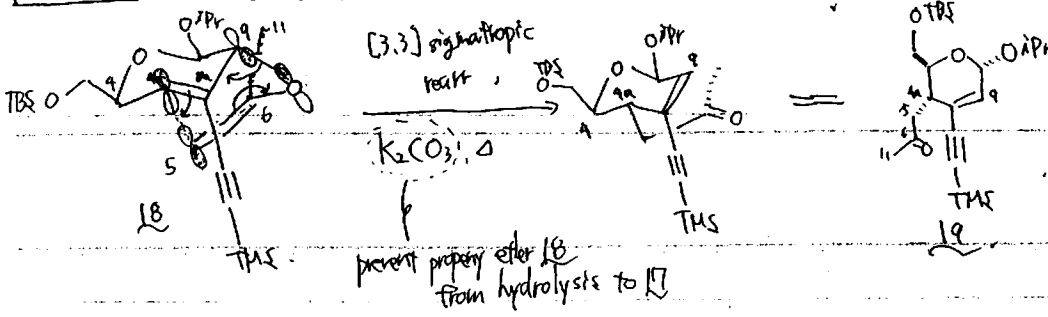 OiPr
9
11
O
4
TBSO
6
5
18
TMS
[3.3] sigmatropic
rearr.
K₂CO₃, Δ
prevent propenyl ether 18
from hydrolysis to 17
OiPr
9
O
TBSO
9a
4
O
TMS
OTBS
O
OiPr
4a
5
9
6
11
O
TMS
19